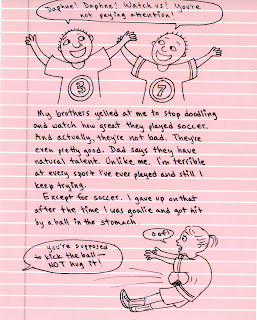 Daphne! Daphne! Watch us! You're
not paying attention!
3
7
My brothers yelled at me to stop doodling
and watch how great they played soccer.
And actually, they're not bad. They're
even pretty good. Dad says they have
natural talent. Unlike me. I'm terrible
at every sport I've ever played and still I
keep trying.
Except for soccer. I gave up on that
after the time I was goalie and got hit
by a ball in the stomach
oof!
you're supposed
to kick the ball—
NOT hug it!